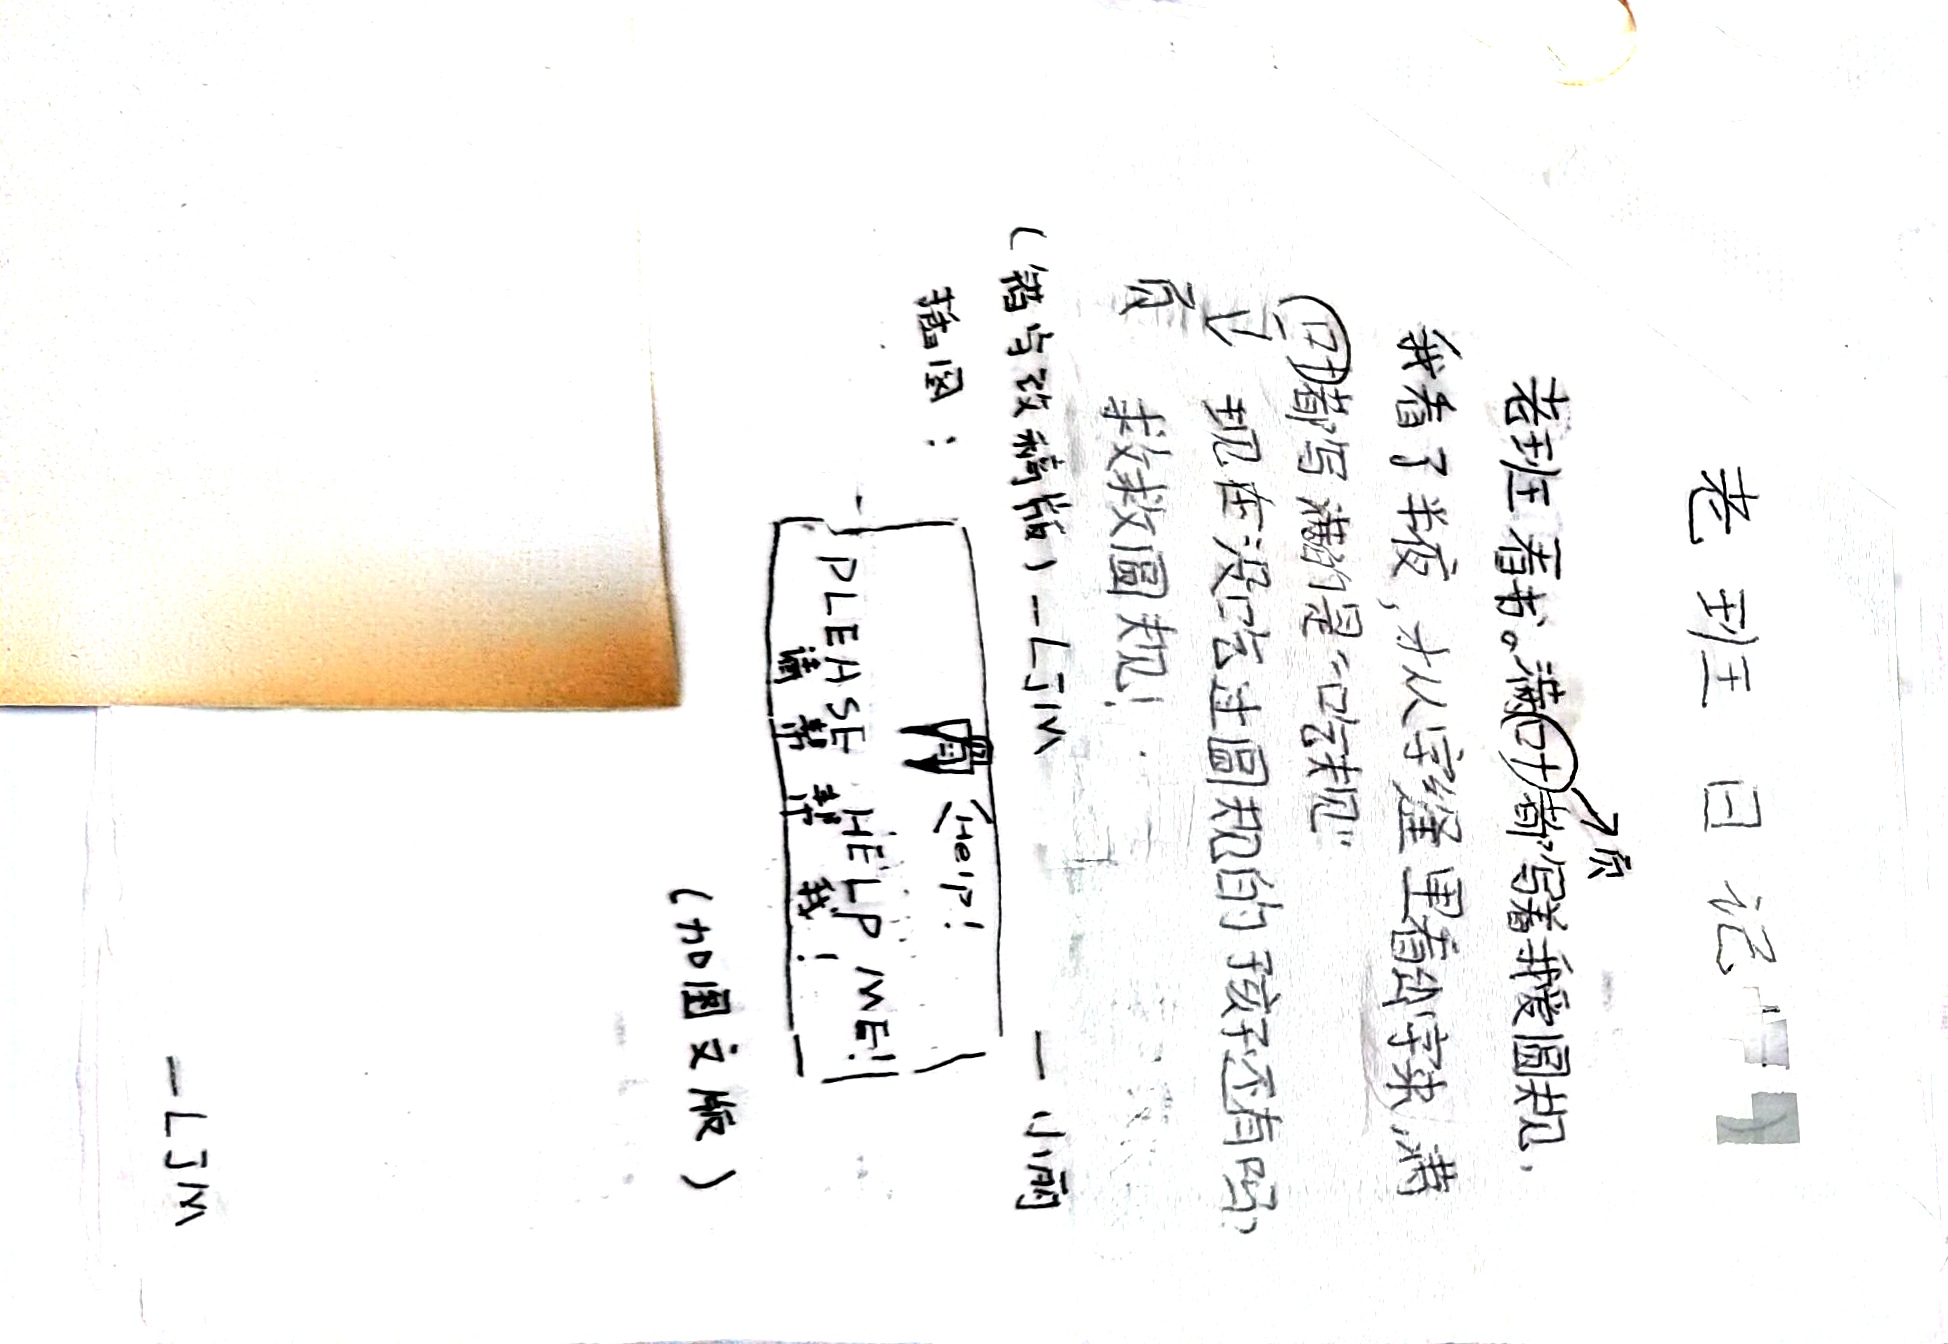 老班日记
老班看书。满叶都写着我爱圆规.
页
我看了半夜,才从字缝里看出字来,满
叶都写满的是“吃规”
页
现在没吃过圆规的孩子还有吗
救救圆规!
(错与改稿版)—LJM —小丽
插图:
Help!
PLEASE HELP ME!
请帮帮我!
(加图文版)
—LJM